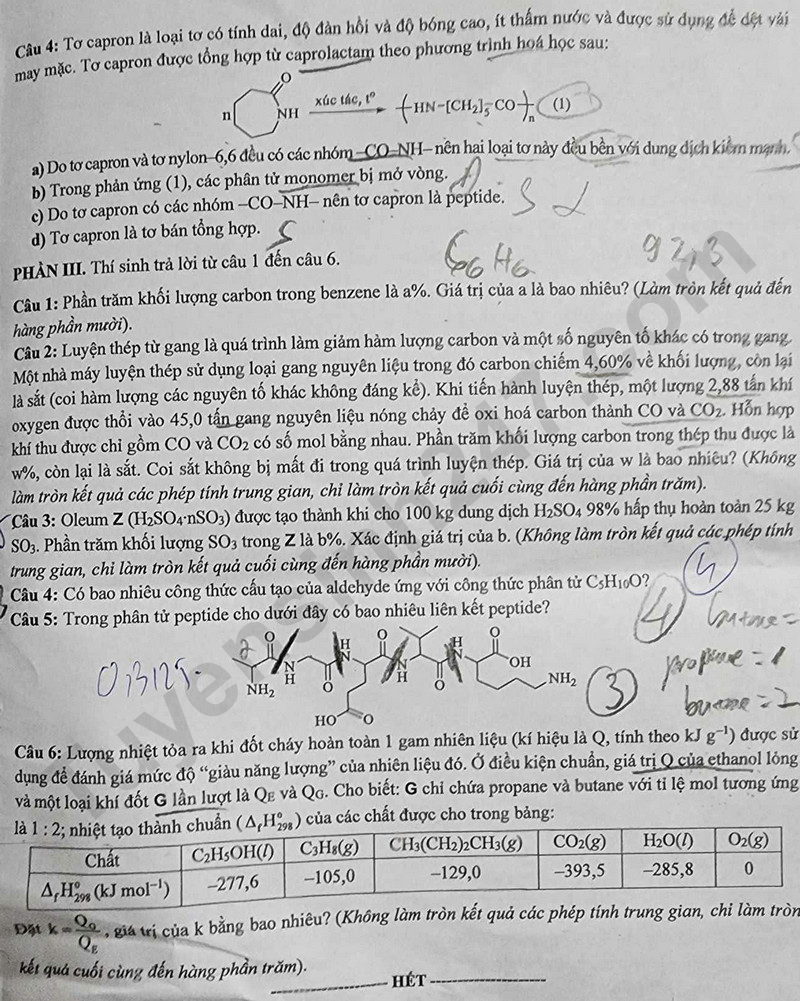 Câu 4: Tơ capron là loại tơ có tính dai, độ đàn hồi và độ bóng cao, ít thấm nước và được sử dụng để dệt vải
may mặc. Tơ capron được tổng hợp từ caprolactam theo phương trình hoá học sau:
n O NH xúc tác, t° (HN–[CH₂]₅–CO)ₙ (1)
a) Do tơ capron và tơ nylon–6,6 đều có các nhóm –CO–NH– nên hai loại tơ này đều bền với dung dịch kiềm mạnh.
b) Trong phản ứng (1), các phân tử monomer bị mở vòng.
c) Do tơ capron có các nhóm –CO–NH– nên tơ capron là peptide. S
d) Tơ capron là tơ bán tổng hợp. S
PHẦN III. Thí sinh trả lời từ câu 1 đến câu 6.
C₆H₆ 92,3
Câu 1: Phần trăm khối lượng carbon trong benzene là a%. Giá trị của a là bao nhiêu? (Làm tròn kết quả đến
hàng phần mười).
Câu 2: Luyện thép từ gang là quá trình làm giảm hàm lượng carbon và một số nguyên tố khác có trong gang.
Một nhà máy luyện thép sử dụng loại gang nguyên liệu trong đó carbon chiếm 4,60% về khối lượng, còn lại
là sắt (coi hàm lượng các nguyên tố khác không đáng kể). Khi tiến hành luyện thép, một lượng 2,88 tấn khí
oxygen được thổi vào 45,0 tấn gang nguyên liệu nóng chảy để oxi hoá carbon thành CO và CO₂. Hỗn hợp
khí thu được chỉ gồm CO và CO₂ có số mol bằng nhau. Phần trăm khối lượng carbon trong thép thu được là
w%, còn lại là sắt. Coi sắt không bị mất đi trong quá trình luyện thép. Giá trị của w là bao nhiêu? (Không
làm tròn kết quả các phép tính trung gian, chỉ làm tròn kết quả cuối cùng đến hàng phần trăm).
Câu 3: Oleum Z (H₂SO₄·nSO₃) được tạo thành khi cho 100 kg dung dịch H₂SO₄ 98% hấp thụ hoàn toàn 25 kg
SO₃. Phần trăm khối lượng SO₃ trong Z là b%. Xác định giá trị của b. (Không làm tròn kết quả các phép tính
trung gian, chỉ làm tròn kết quả cuối cùng đến hàng phần mười).
Câu 4: Có bao nhiêu công thức cấu tạo của aldehyde ứng với công thức phân tử C₅H₁₀O? 4
Câu 5: Trong phân tử peptide cho dưới đây có bao nhiêu liên kết peptide?
4
0,3125
O NH₂ N H O H N O N H O H N O OH NH₂ HO O
3
propane = 1
butane = 2
Câu 6: Lượng nhiệt tỏa ra khi đốt cháy hoàn toàn 1 gam nhiên liệu (kí hiệu là Q, tính theo kJ g⁻¹) được sử
dụng để đánh giá mức độ “giàu năng lượng” của nhiên liệu đó. Ở điều kiện chuẩn, giá trị Q của ethanol lỏng
và một loại khí đốt G lần lượt là Q_E và Q_G. Cho biết: G chỉ chứa propane và butane với tỉ lệ mol tương ứng
là 1 : 2; nhiệt tạo thành chuẩn (Δ_fH°₂₉₈) của các chất được cho trong bảng:
Chất C₂H₅OH(l) C₃H₈(g) CH₃(CH₂)₂CH₃(g) CO₂(g) H₂O(l) O₂(g)
Δ_fH°₂₉₈ (kJ mol⁻¹) –277,6 –105,0 –129,0 –393,5 –285,8 0
Đặt k = Q_G/Q_E, giá trị của k bằng bao nhiêu? (Không làm tròn kết quả các phép tính trung gian, chỉ làm tròn
kết quả cuối cùng đến hàng phần trăm).
HẾT